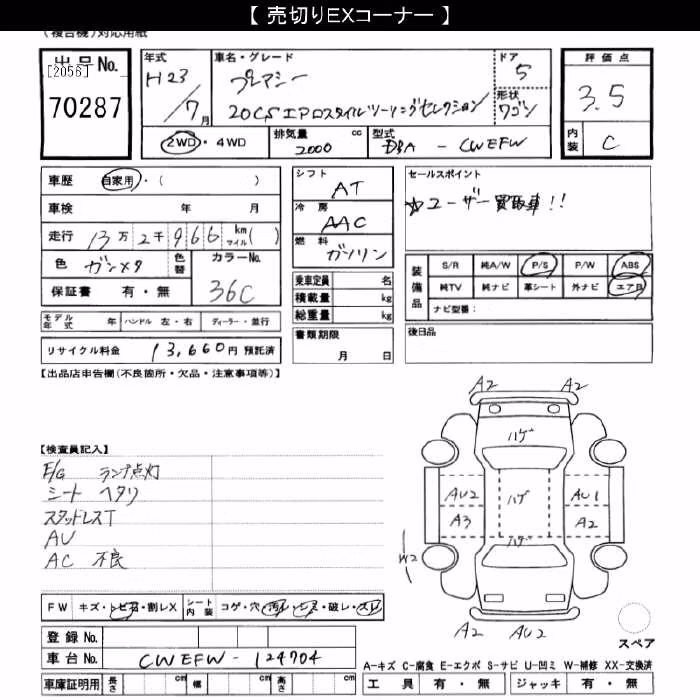 【 売切りEXコーナー 】
(複合機)対応用紙
出品No.
[2056]
70287
年式 車名・グレード ドア
H23 プレマシー 5
/7月 20CS エアロスタイルツーリングセレクション
形状 ワゴン
2WD・4WD 排気量 cc 2000 型式 DBA - CWEFW
評価点
3.5
内装 C
車歴 自家用・( )
車検 年 月
走行 13万2千966 km マイル( )
色 ガンメタ 色替 カラーNo. 36C
保証書 有・無
シフト AT
冷房 AAC
燃料 ガソリン
乗車定員 名
積載量 kg
総重量 kg
セールスポイント
☆ユーザー買取車!!
装備品
S/R 純A/W P/S P/W ABS
純TV 純ナビ 革シート 外ナビ エアB
ナビ型番:
モデル年式 年 ハンドル 左・右 ディーラー・並行
リサイクル料金 13,660円 預託済
書類期限
月 日
後日品
【出品店申告欄(不良箇所・欠品・注意事項等)】
【検査員記入】
E/G ランプ点灯
シート ヘタリ
スタッドレスT
AU
AC 不良
A2 A2
ハゲ
AU2 ハゲ AU1
A3 A2
ハゲ
W2
A2 AU2
スペア
FW キズ・トビ石・割レX シート内装 コゲ・穴・汚レ・シミ・破レ・スレ
登録No.
車台No. CWEFW-124704
車庫証明用 長さ cm 幅 cm 高さ cm
A-キズ C-腐食 E-エクボ S-サビ U-凹ミ W-補修 XX-交換済
工具 有・無 ジャッキ 有・無